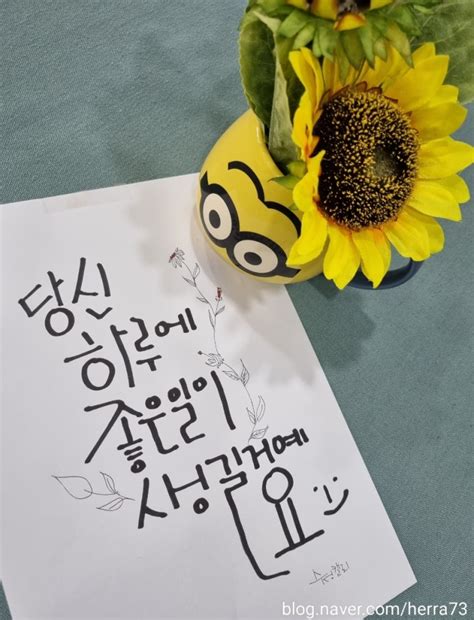 당신
하루에
좋은일이
생길거예
요
blog.naver.com/herra73